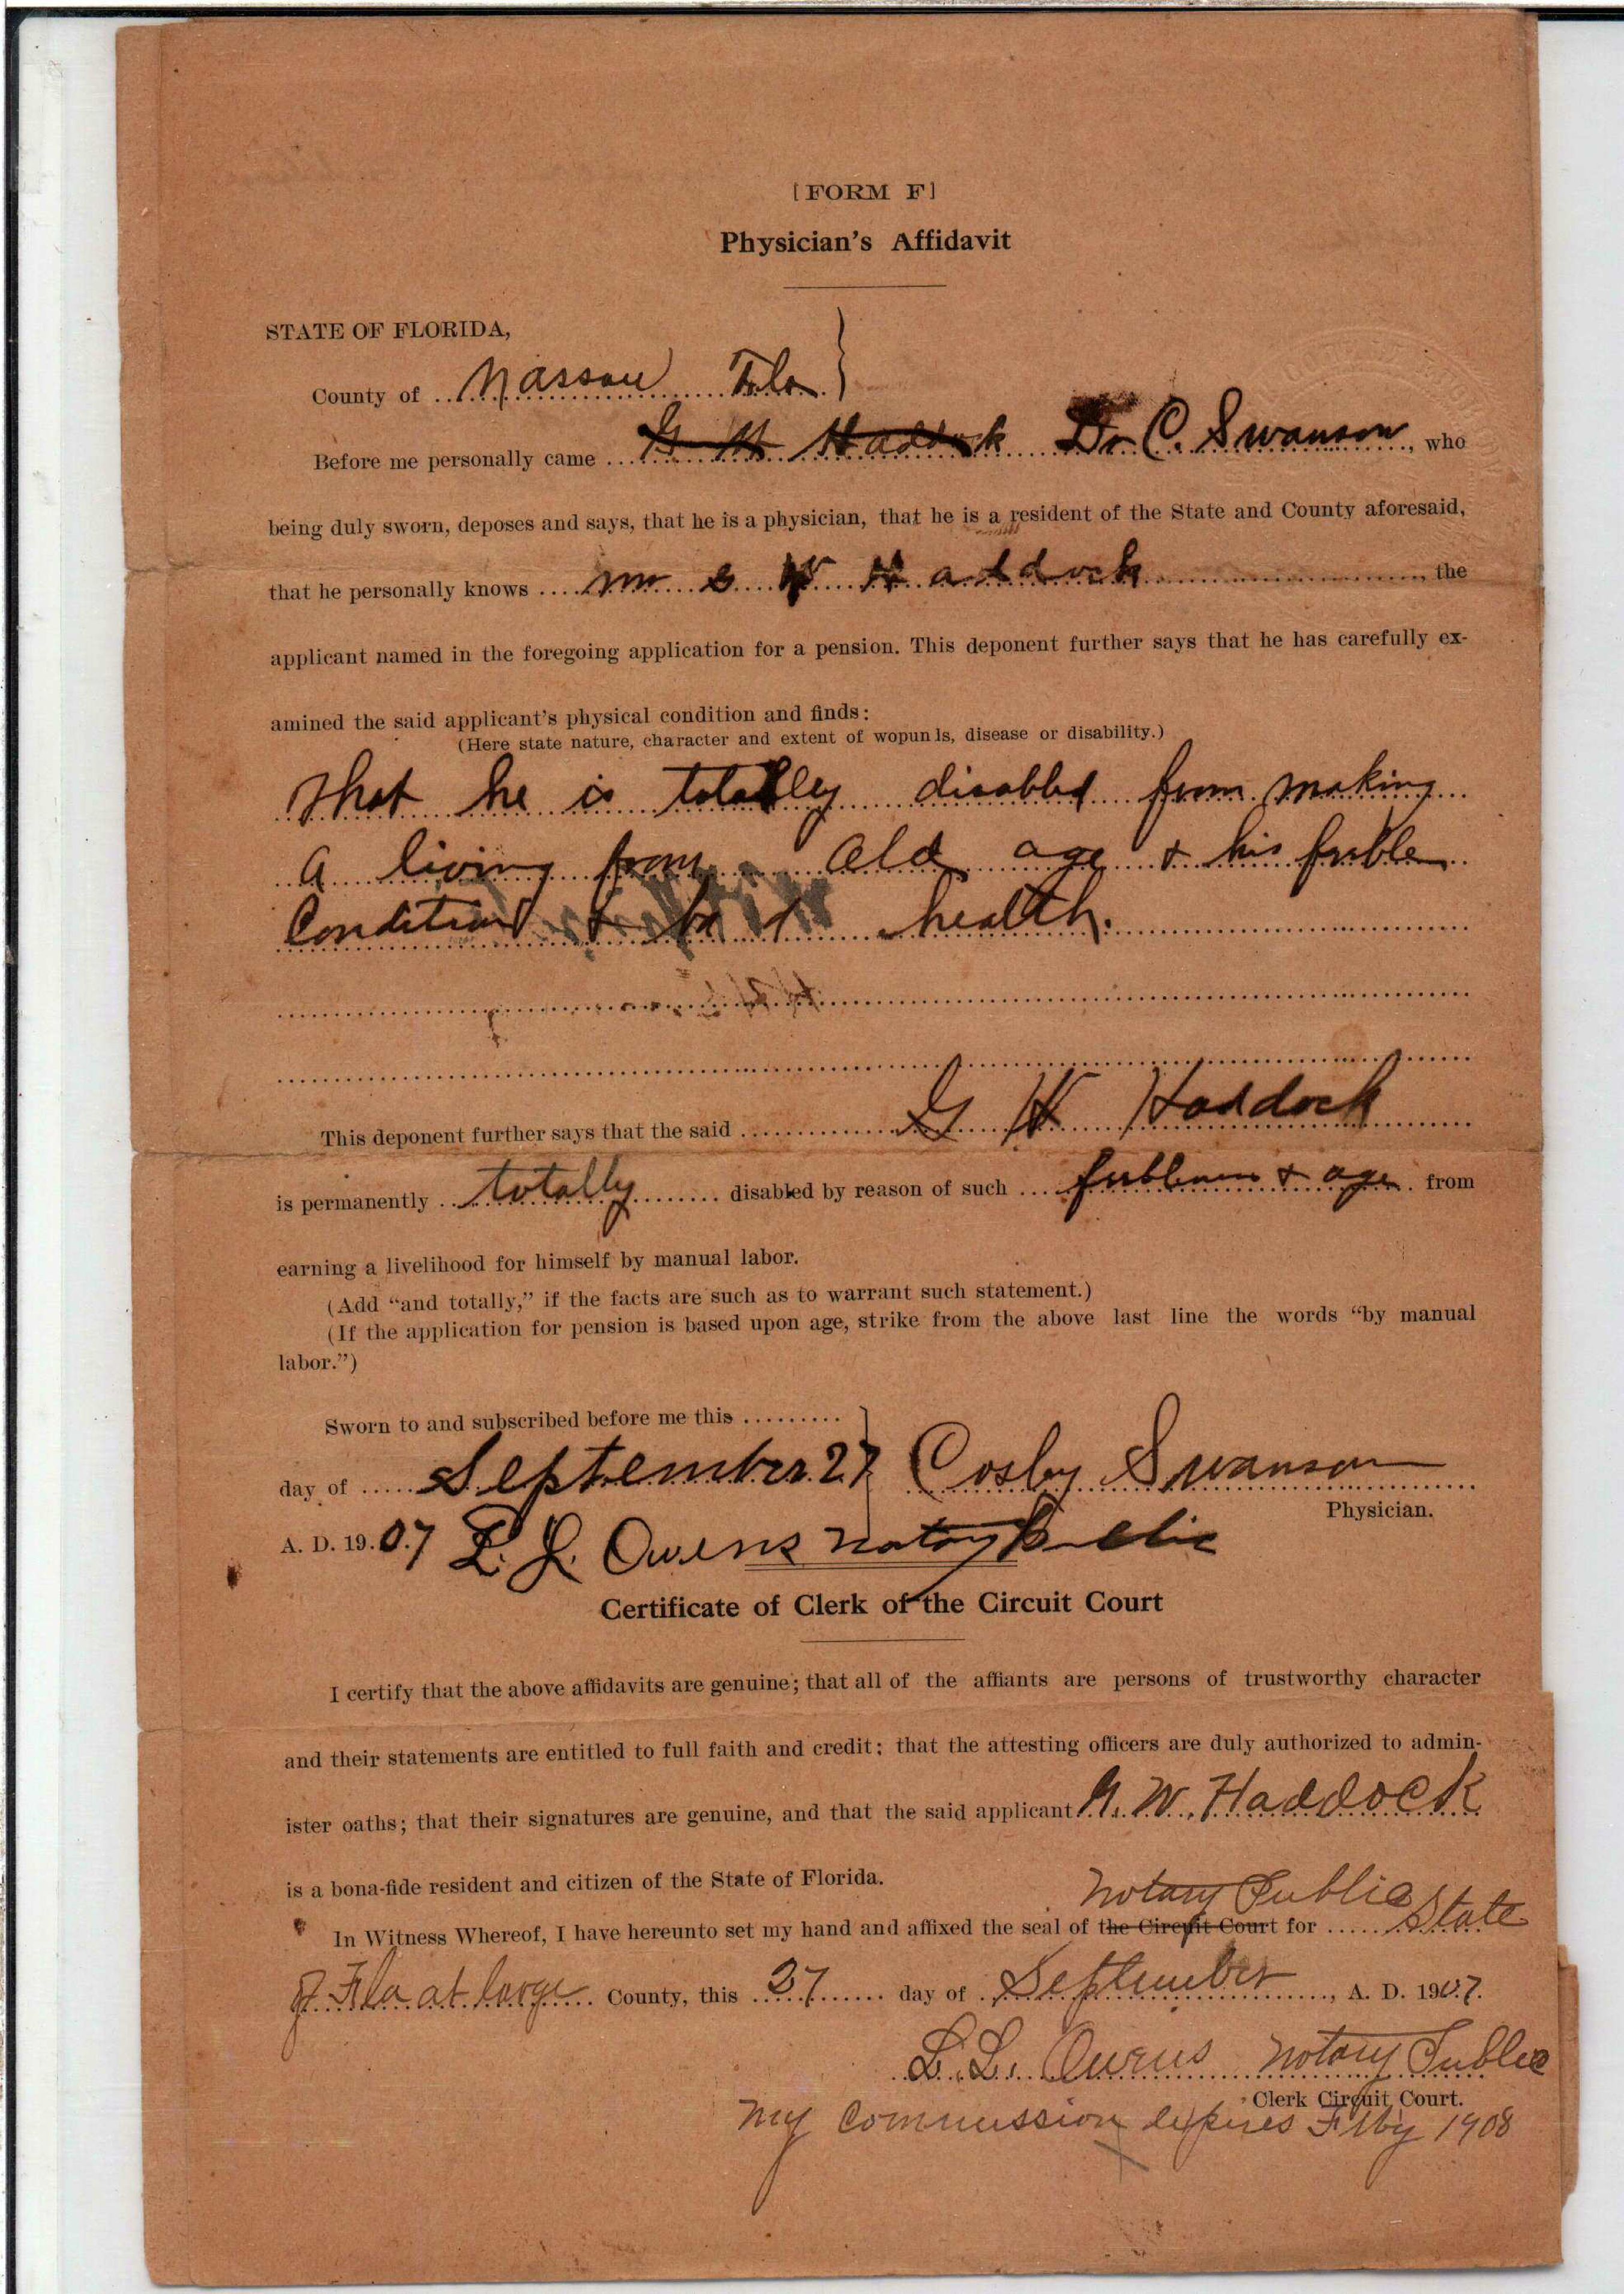 [FORM F]
Physician's Affidavit
STATE OF FLORIDA,
County of Nassau Fla
Before me personally came G W Haddock Dr C. Swanson, who
being duly sworn, deposes and says, that he is a physician, that he is a resident of the State and County aforesaid,
that he personally knows Mr G W Haddock, the
applicant named in the foregoing application for a pension. This deponent further says that he has carefully ex-
amined the said applicant's physical condition and finds:
(Here state nature, character and extent of wopunls, disease or disability.)
that he is totally disabled from making
a living from old age & his feeble
Condition & bad health.
This deponent further says that the said G W Haddock
is permanently totally disabled by reason of such feebleness & age from
earning a livelihood for himself by manual labor.
(Add "and totally," if the facts are such as to warrant such statement.)
(If the application for pension is based upon age, strike from the above last line the words "by manual
labor.")
Sworn to and subscribed before me this
day of September 27 Cosby Swanson
Physician.
A. D. 1907 L. L. Owens Notary Public
Certificate of Clerk of the Circuit Court
I certify that the above affidavits are genuine; that all of the affiants are persons of trustworthy character
and their statements are entitled to full faith and credit; that the attesting officers are duly authorized to admin-
ister oaths; that their signatures are genuine, and that the said applicant G. W. Haddock
is a bona-fide resident and citizen of the State of Florida.
Notary Public
In Witness Whereof, I have hereunto set my hand and affixed the seal of the Circuit Court for State
of Fla at large County, this 27 day of September, A. D. 1907.
L. L. Owens Notary Public
Clerk Circuit Court.
My Commission expires Feby 1908